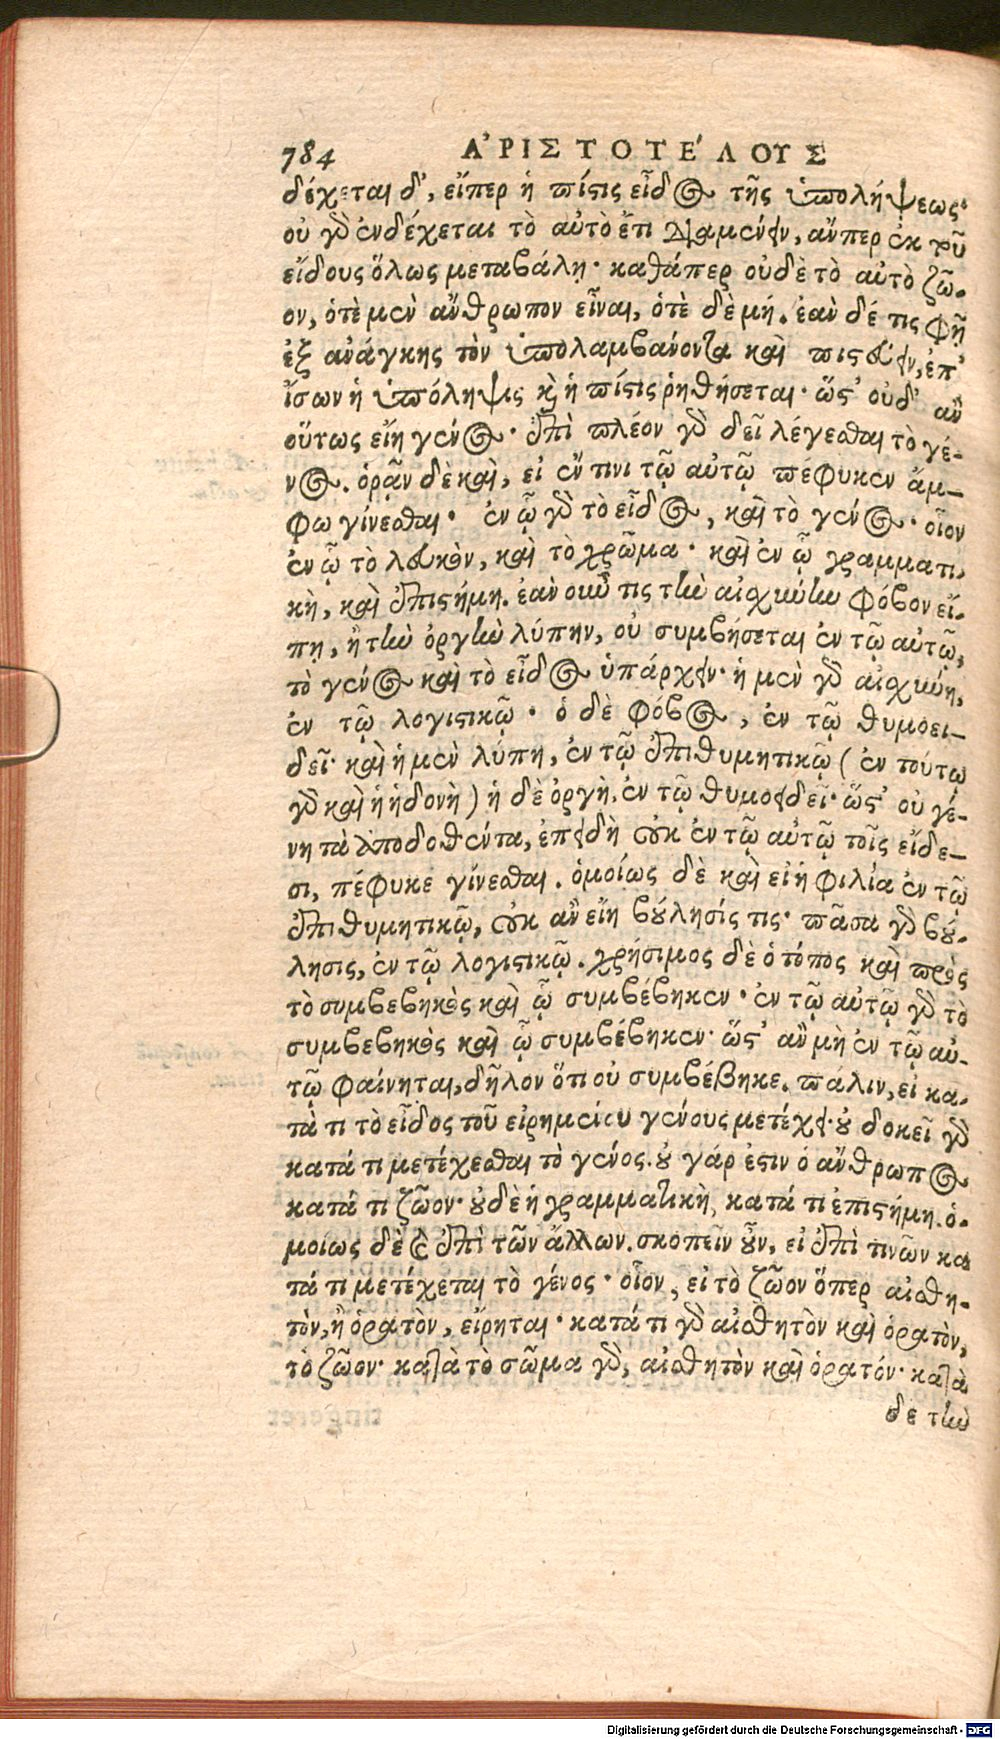 784 ΑʼΡΙΣΤΟΤΕʹΛΟΥΣ
δέχεται δ', εἴπερ ἡ πίστις εἶδος τῆς ὑπολήψεως·
οὐ γὰρ ἐνδέχεται τὸ αὐτὸ ἔτι διαμένειν, ἄνπερ ἐκ τοῦ
εἴδους ὅλως μεταβάλῃ· καθάπερ οὐδὲ τὸ αὐτὸ ζῶ-
ον, ὁτὲ μὲν ἄνθρωπον εἶναι, ὁτὲ δὲ μή. ἐὰν δέ τις φῇ
ἐξ ἀνάγκης τὸν ὑπολαμβάνοντα καὶ πιστεύειν, ἐπ'
ἴσων ἡ ὑπόληψις κὶ ἡ πίστις ῥηθήσεται· ὥστ' οὐδ' ἂν
οὕτως εἴη γένος· ἐπὶ πλέον γὰρ δεῖ λέγεσθαι τὸ γέ-
νος. ὁρᾷν δὲ καὶ, εἰ ἔν τινι τῷ αὐτῷ πέφυκεν ἄμ-
φω γίνεσθαι· ἐν ᾧ γὰρ τὸ εἶδος, καὶ τὸ γένος· οἷον
ἐν ᾧ τὸ λευκὸν, καὶ τὸ χρῶμα· καὶ ἐν ᾧ γραμματι-
κὴ, καὶ ἐπιστήμη. ἐὰν οὖν τις τὴν αἰσχύνην φόβον εἴ-
πῃ, ἢ τὴν ὀργὴν λύπην, οὐ συμβήσεται ἐν τῷ αὐτῷ,
τὸ γένος καὶ τὸ εἶδος ὑπάρχειν· ἡ μὲν γὰρ αἰσχύνη,
ἐν τῷ λογιστικῷ· ὁ δὲ φόβος, ἐν τῷ θυμοει-
δεῖ· καὶ ἡ μὲν λύπη, ἐν τῷ ἐπιθυμητικῷ (ἐν τούτῳ
γὰρ καὶ ἡ ἡδονὴ) ἡ δὲ ὀργὴ, ἐν τῷ θυμοειδεῖ· ὥστ' οὐ γέ-
νη τὰ ἀποδοθέντα, ἐπειδὴ οὐκ ἐν τῷ αὐτῷ τοῖς εἴδε-
σι, πέφυκε γίνεσθαι. ὁμοίως δὲ καὶ εἰ ἡ φιλία ἐν τῷ
ἐπιθυμητικῷ, οὐκ ἂν εἴη βούλησίς τις· πᾶσα γὰρ βού-
λησις, ἐν τῷ λογιστικῷ. χρήσιμος δὲ ὁ τόπος καὶ πρὸς
τὸ συμβεβηκὸς καὶ ᾧ συμβέβηκεν· ἐν τῷ αὐτῷ γὰρ τὸ
συμβεβηκὸς καὶ ᾧ συμβέβηκεν· ὥστ' ἂν μὴ ἐν τῷ αὐ-
τῷ φαίνηται, δῆλον ὅτι οὐ συμβέβηκε. πάλιν, εἰ κα-
τά τι τὸ εἶδος τοῦ εἰρημένου γένους μετέχει· οὐ δοκεῖ γὰρ
κατά τι μετέχεσθαι τὸ γένος. οὐ γάρ ἐστιν ὁ ἄνθρωπος
κατά τι ζῶον· οὐδὲ ἡ γραμματικὴ, κατά τι ἐπιστήμη. ὁ-
μοίως δὲ καὶ ἐπὶ τῶν ἄλλων. σκοπεῖν οὖν, εἰ ἐπὶ τινῶν κα
τά τι μετέχεται τὸ γένος· οἷον, εἰ τὸ ζῶον ὅπερ αἰσθη-
τὸν, ἢ ὁρατὸν, εἴρηται· κατά τι γὰρ αἰσθητὸν καὶ ὁρατὸν,
τὸ ζῶον· κατὰ τὸ σῶμα γὰρ, αἰσθητὸν καὶ ὁρατόν· κατὰ
δὲ τὴν
Digitalisierung gefördert durch die Deutsche Forschungsgemeinschaft - DFG